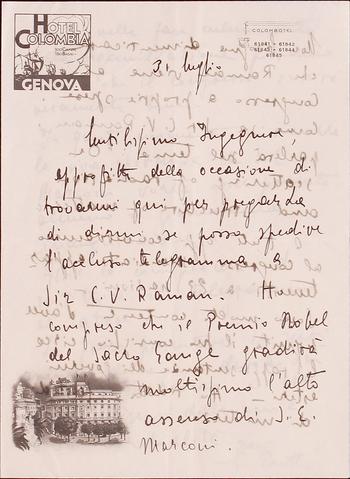 HOTEL
COLOMBIA
GENOVA
COLOMBOTEL
61841 • 61842
61843 • 61844
61845
31 luglio
Gentilissimo Ingegnere,
approfitto della occasione di
trovarmi qui per pregarla
di dirmi se posso spedire
l'accluso telegramma a
Sir C. V. Raman. Ho
compreso che il Premio Nobel
del Sacro Gange gradirà
moltissimo l'alto
assenso di S. E.
Marconi.